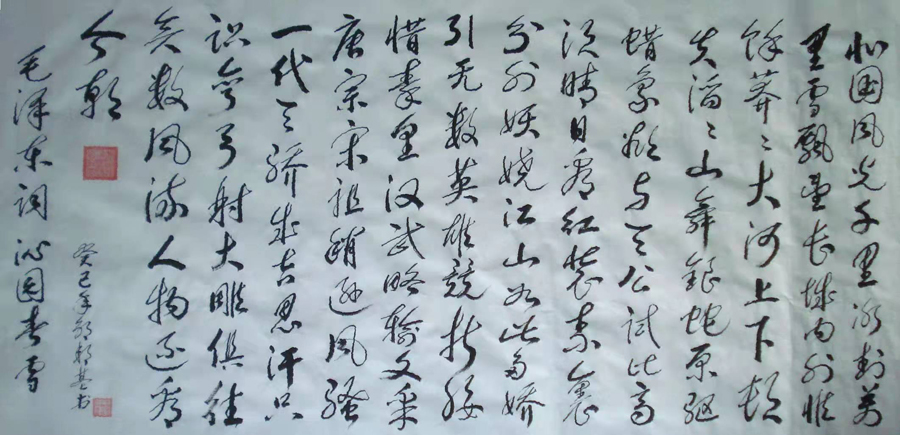 北国风光千里冰封万
里雪飘望长城内外惟
馀莽〻大河上下顿
失滔〻山舞银蛇原驱
蜡象欲与天公试比高
须晴日看红装素裹
分外妖娆江山如此多娇
引无数英雄竞折腰
惜秦皇汉武略输文采
唐宗宋祖稍逊风骚
一代天骄成吉思汗只
识弯弓射大雕俱往
矣数风流人物还看
今朝
癸巳年书
毛泽东词沁园春雪